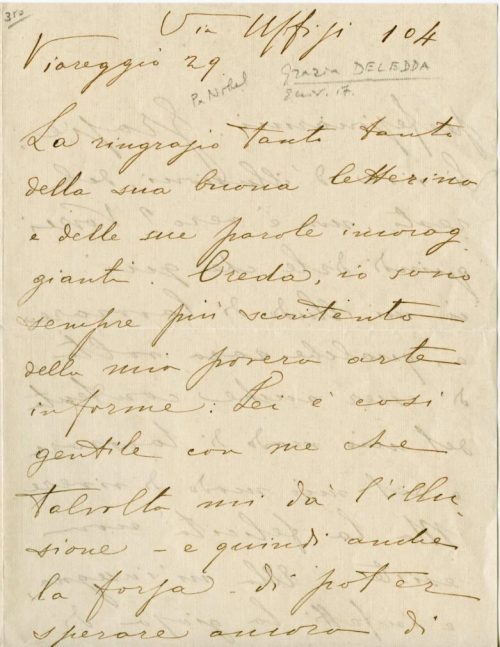 350
Via Uffizi 104
Viareggio 29
Grazia DELEDDA
Pr. Nobel
La ringrazio tanto tanto
della sua buona letterina
e delle sue parole incorag
gianti. Creda, io sono
sempre più scontenta
della mia povera arte
informe: Lei è così
gentile con me che
talvolta mi dà l'illu-
sione - e quindi anche
la forza - di poter
sperare ancora di